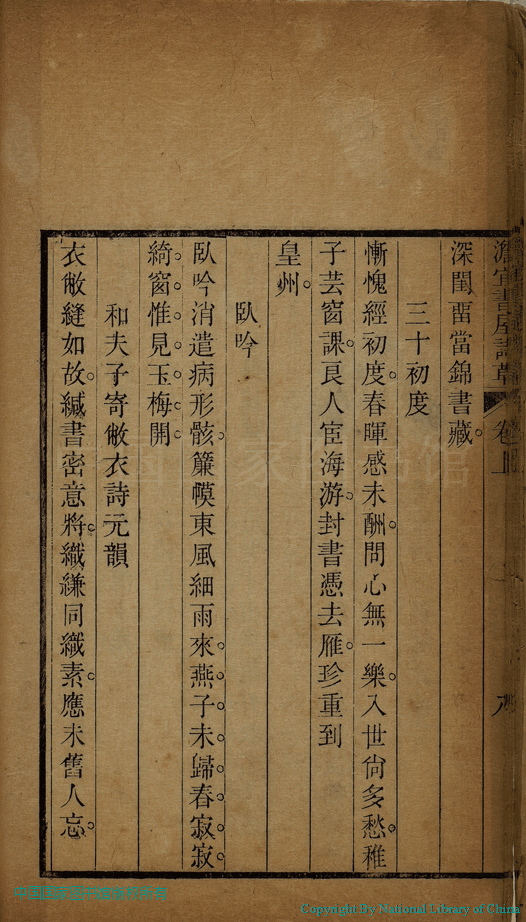 深閨畱當錦書藏。
三十初度
慚愧經初度。春暉感未酬。問心無一樂。入世尙多愁。稚
子芸窗課。良人宦海游。封書憑去雁。珍重到
皇州。
臥吟
臥吟消遣病形骸。簾幙東風細雨來。燕子未歸春寂寂。
綺窗惟見玉梅開。
和夫子寄敝衣詩元韻
衣敝縫如故。緘書密意將。織縑同織素。應未舊人忘。
書屋詩草
卷上
Copyright By National Library of China